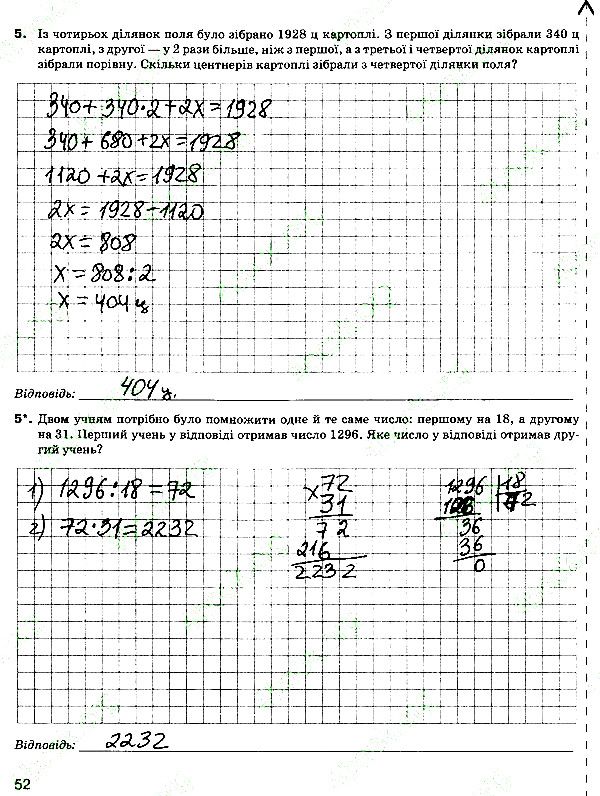 5. Із чотирьох ділянок поля було зібрано 1928 ц картоплі. З першої ділянки зібрали 340 ц
картоплі, з другої — у 2 рази більше, ніж з першої, а з третьої і четвертої ділянок картоплі
зібрали порівну. Скільки центнерів картоплі зібрали з четвертої ділянки поля?
340+340·2+2х=1928
340+680+2х=1928
1120+2х=1928
2х=1928-1120
2х=808
х=808:2
х=404 ц
Відповідь: 404 ц.
5*. Двом учням потрібно було помножити одне й те саме число: першому на 18, а другому
на 31. Перший учень у відповіді отримав число 1296. Яке число у відповіді отримав дру-
гий учень?
1) 1296:18=72
2) 72·31=2232
х 72
31
72
216
2232
1296 18
126 72
36
36
0
Відповідь: 2232
52